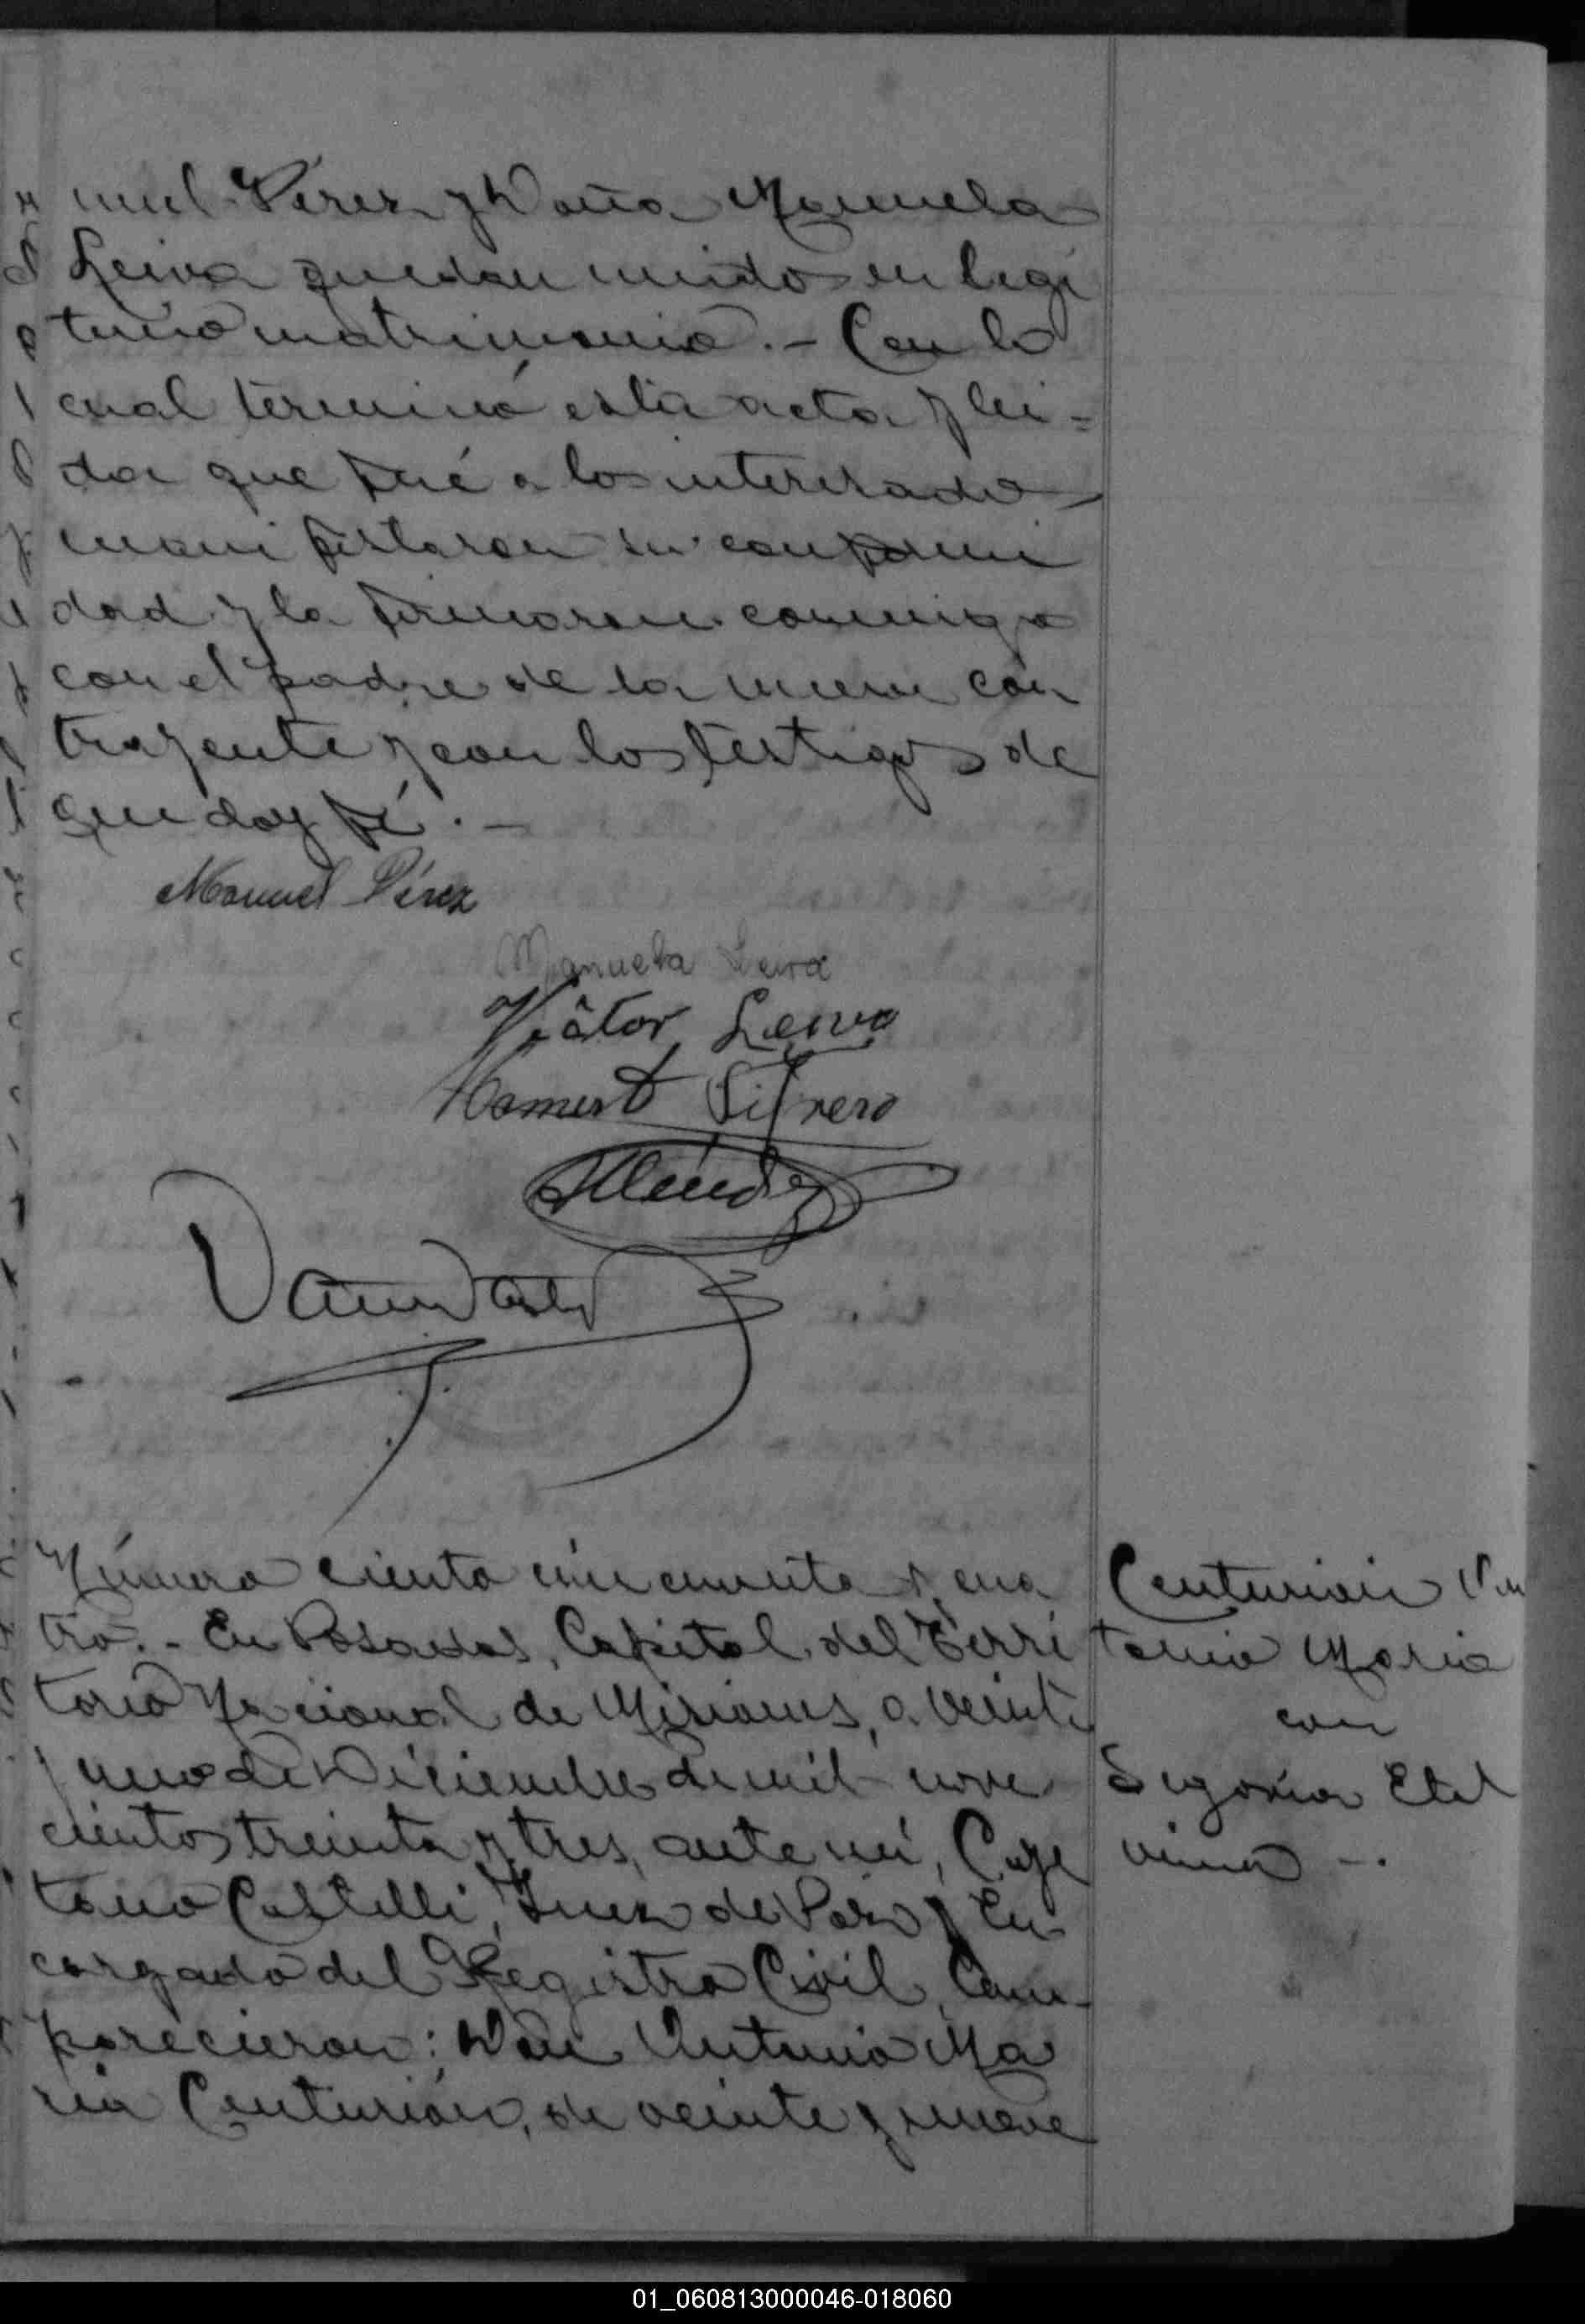 nuel Pérez y Doña Manuela
Leiva quedan unidos en legi
timo matrimonio. - Con lo
cual terminó esta acta y lei=
da que fué a los interesados
manifestaron su conformi
dad y la firmaron conmigo
con el padre de la menor con
trayente y con los testigos de
que doy fé. -
Manuel Pérez
Manuela Leiva
Victor Leiva
Número ciento cincuenta y cua
tro. - En Posadas, Capital del Terri
torio Nacional de Misiones, a veinte
y uno de Diciembre de mil nove
cientos treinta y tres, ante mí, Caye
tano Castelli, Juez de Paz y En
cargado del Registro Civil, Com-
parecieron: Don Antonio Ma
ria Centurión, de veinte y nueve
Centurión An
tonio Maria
con
Segovia Etel
vina -.
01_060813000046-018060